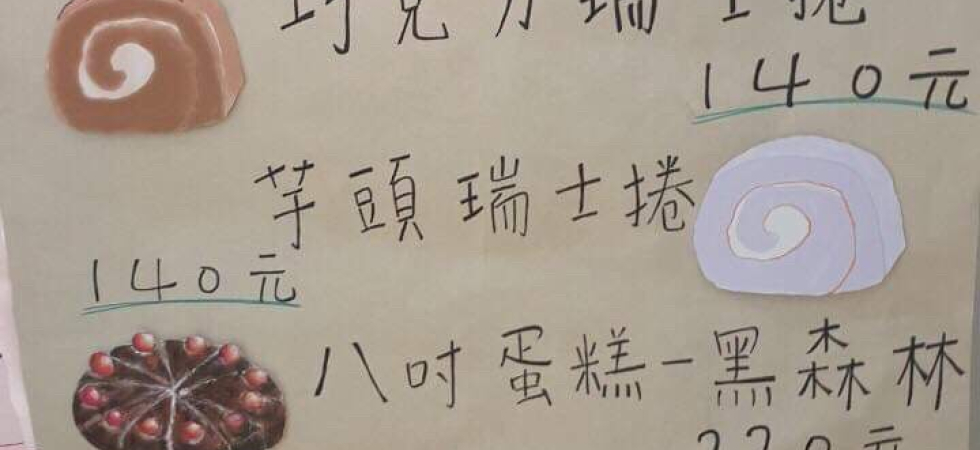 巧克力瑞士捲
140元
芋頭瑞士捲
140元
八吋蛋糕-黑森林
元